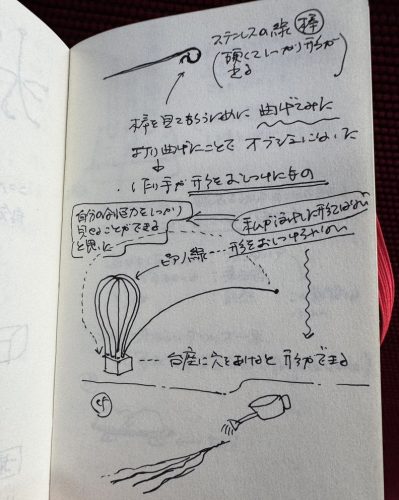 ステンレスの線 棒
(頭くてしっかり形が
出る
棒を見てもらうために 曲げてみた
より曲げたことで オブジェになった
作り手が形をおしつけたもの
自分の  力をしっかり
見せることができる
と思った
私が  した形ではない
形をおしつけられない
ピアノ線
台座に穴をあけると 形ができる